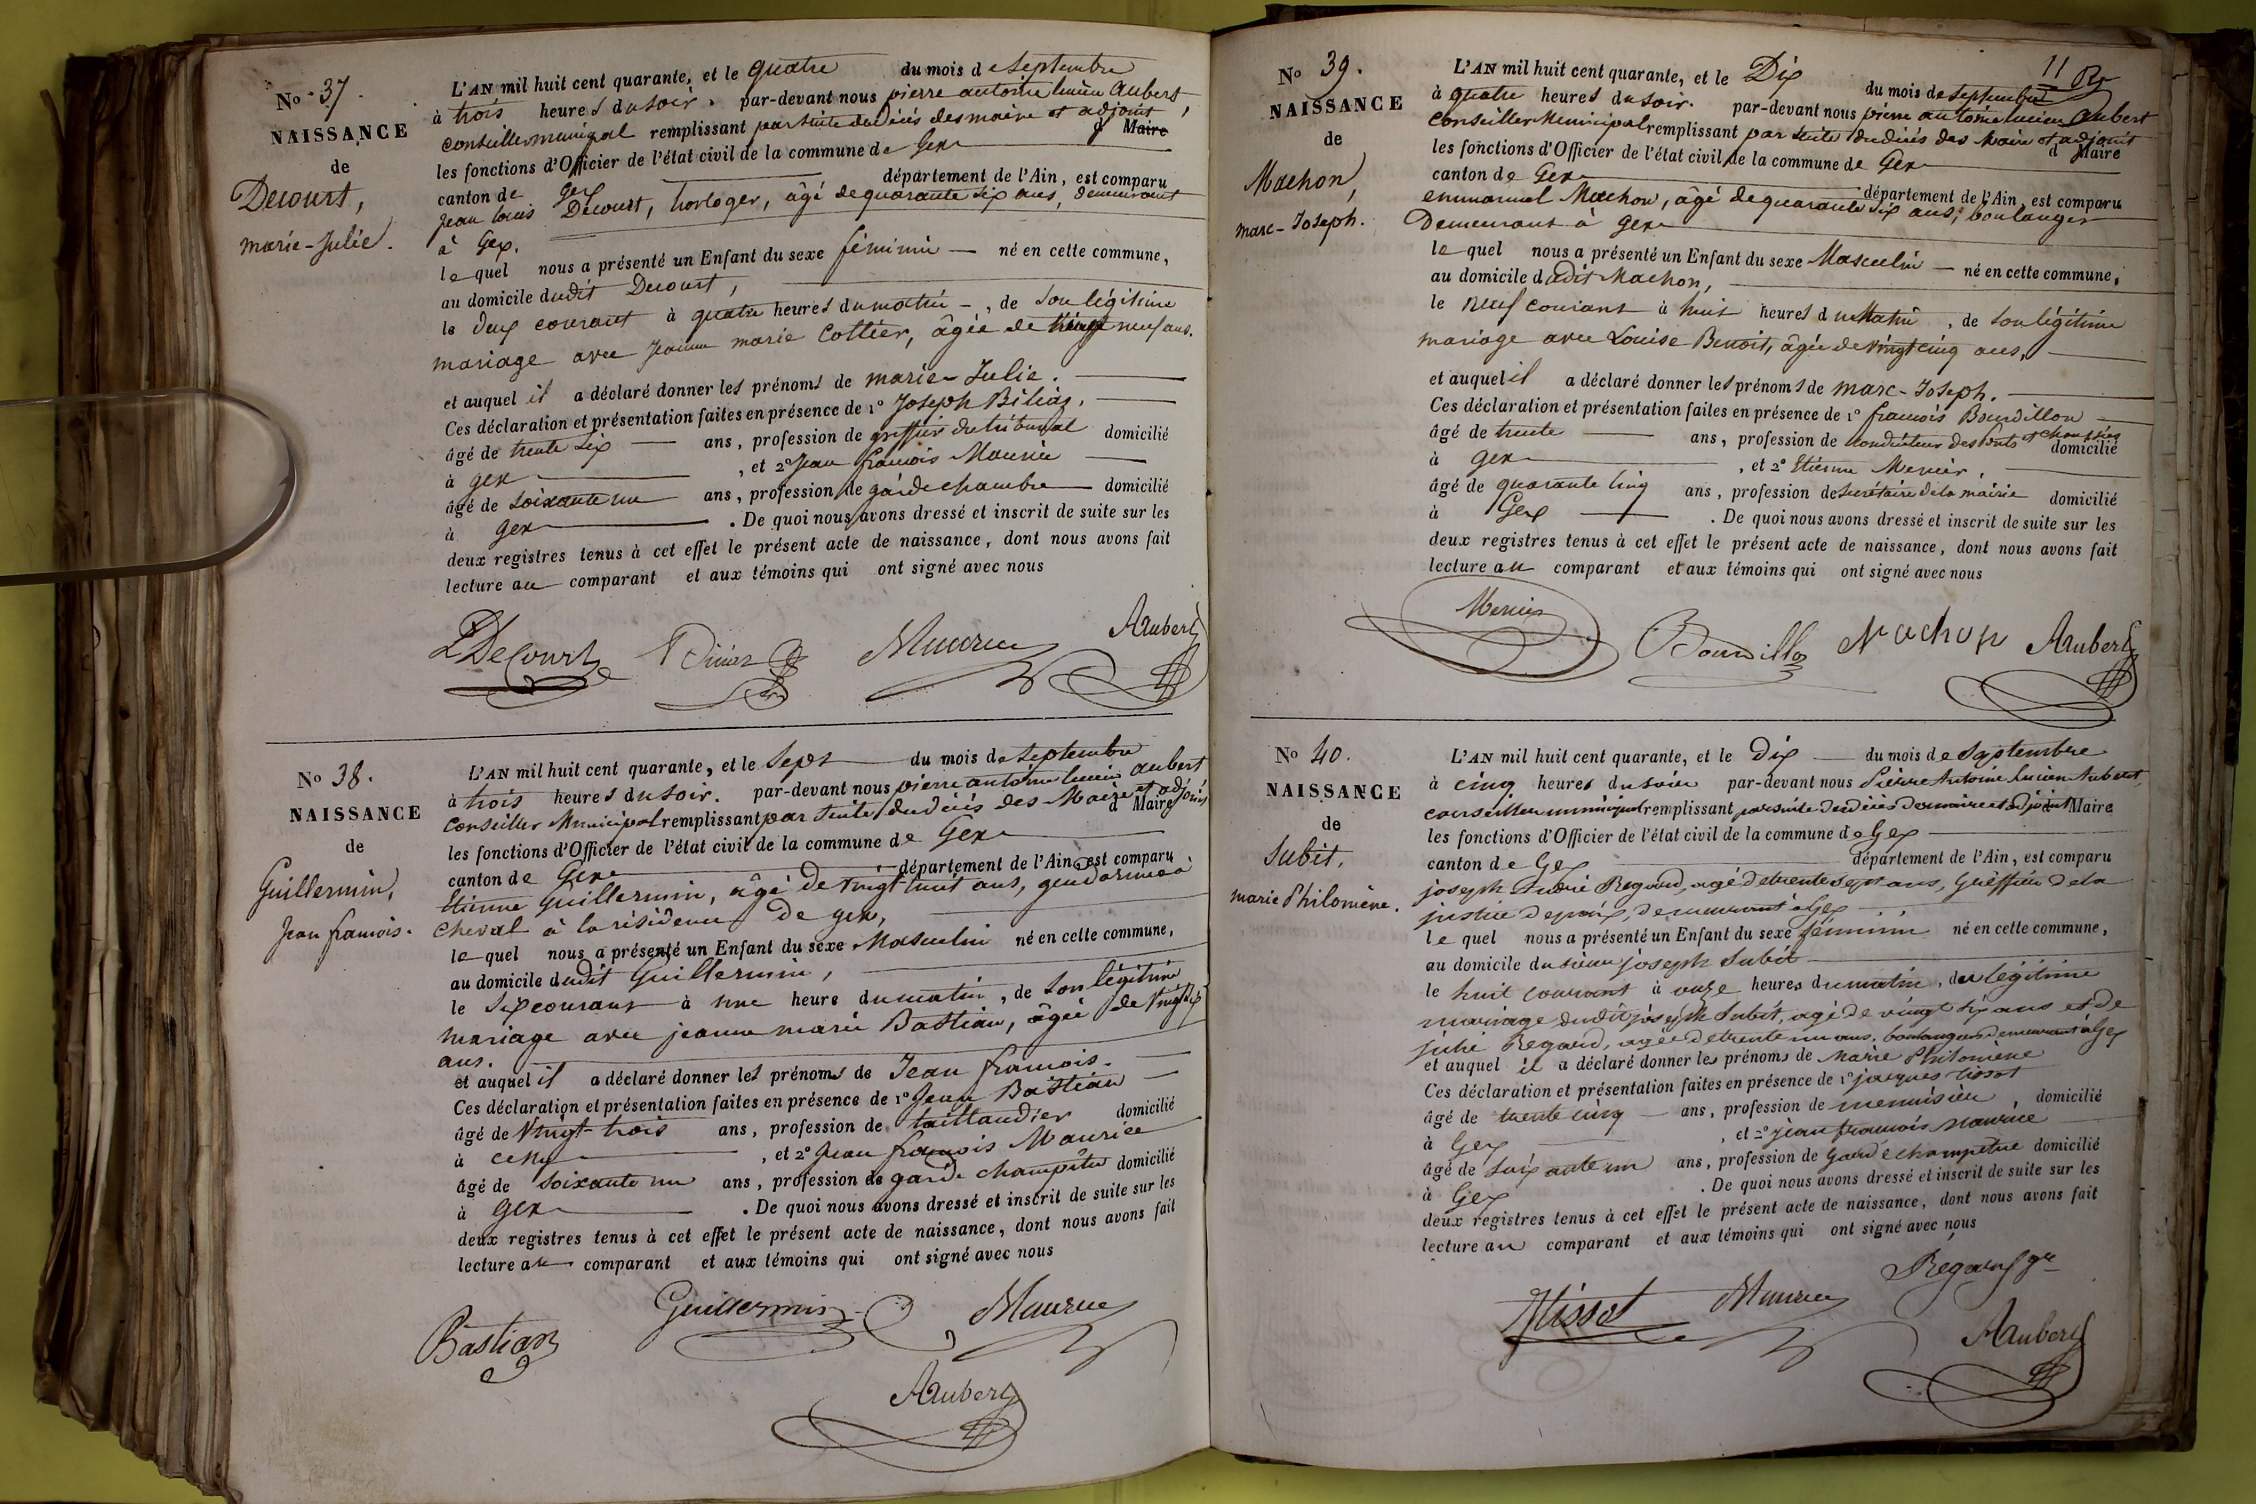 No 37.
NAISSANCE
de
Decourt,
marie-Julie.
L'AN mil huit cent quarante, et le quatre du mois de septembre
à trois heures du soir. par-devant nous pierre antoine lucien aubert,
conseiller municipal remplissant par suite du décès des maire et adjoint d Maire
les fonctions d'Officier de l'état civil de la commune de Gex
canton de Gex département de l'Ain, est comparu
Jean Louis Decourt, horloger, âgé de quarante six ans, demeurant
à Gex.
le quel nous a présenté un Enfant du sexe féminin né en cette commune,
au domicile dudit Decourt,
le deux courant à quatre heures du matin, de son légitime
mariage avec Jeanne marie Cottier, âgée de neuf ans.
et auquel il a déclaré donner les prénoms de marie-Julie.
Ces déclaration et présentation faites en présence de 1° Joseph
âgé de trente six ans, profession de greffier du tribunal domicilié
à gex, et 2° Jean françois Maurice
âgé de soixante un ans, profession de garde chambre domicilié
à gex. De quoi nous avons dressé et inscrit de suite sur les
deux registres tenus à cet effet le présent acte de naissance, dont nous avons fait
lecture au comparant et aux témoins qui ont signé avec nous
LDeCourt Maurice AAubert
No 38.
NAISSANCE
de
Guillermin,
Jean françois.
L'AN mil huit cent quarante, et le Sept du mois de septembre
à trois heures du soir. par-devant nous pierre antoine lucien aubert
conseiller Municipal remplissant par suite du décès des Maire et adjoint d Maire
les fonctions d'Officier de l'état civil de la commune de Gex
canton de Gex département de l'Ain, est comparu
Etienne Guillermin, âgé de vingt huit ans, gendarme à
cheval à la résidence de gex,
le quel nous a présenté un Enfant du sexe Masculin né en cette commune,
au domicile dudit Guillermin,
le six courant à une heure du matin, de son légitime
mariage avec jeanne marie Bastian, âgée de vingt six
ans.
et auquel il a déclaré donner les prénoms de Jean françois.
Ces déclaration et présentation faites en présence de 1° Jean Bastian
âgé de vingt-trois ans, profession de taillandier domicilié
à cessy, et 2° Jean françois Maurice
âgé de soixante un ans, profession de garde champêtre domicilié
à gex. De quoi nous avons dressé et inscrit de suite sur les
deux registres tenus à cet effet le présent acte de naissance, dont nous avons fait
lecture au comparant et aux témoins qui ont signé avec nous
Bastian Guillermin Maurice
AAubert
11
No 39.
NAISSANCE
de
Machon,
marc-Joseph.
L'AN mil huit cent quarante, et le Dix du mois de septembre
à quatre heures du soir. par-devant nous pierre antoine lucien aubert
conseiller Municipal remplissant par suite du décès des Maire et adjoint d Maire
les fonctions d'Officier de l'état civil de la commune de Gex
canton de Gex département de l'Ain, est comparu
emmanuel Machon, âgé de quarante six ans, boulanger
Demeurant à gex
le quel nous a présenté un Enfant du sexe Masculin né en cette commune,
au domicile dudit Machon,
le neuf courant à huit heures du Matin, de son légitime
mariage avec Louise Benoit, âgée de vingt cinq ans,
et auquel il a déclaré donner les prénoms de marc-Joseph.
Ces déclaration et présentation faites en présence de 1° françois Bourdillon
âgé de trente ans, profession de conducteur des ponts et chaussées domicilié
à gex, et 2° Etienne Mercier.
âgé de quarante cinq ans, profession de secrétaire de la mairie domicilié
à Gex. De quoi nous avons dressé et inscrit de suite sur les
deux registres tenus à cet effet le présent acte de naissance, dont nous avons fait
lecture au comparant et aux témoins qui ont signé avec nous
Mercier Bourdillon Machon AAubert
No 40.
NAISSANCE
de
Subit,
marie Philomène.
L'AN mil huit cent quarante, et le dix du mois de Septembre
à cinq heures du soir par-devant nous Pierre Antoine Lucien Aubert,
conseiller municipal remplissant par suite du décès des maire et adjoint d Maire
les fonctions d'Officier de l'état civil de la commune de Gex
canton de Gex département de l'Ain, est comparu
joseph Regaud, agé de trente sept ans, Greffier de la
justice de paix, demeurant à Gex
le quel nous a présenté un Enfant du sexe féminin né en cette commune,
au domicile du sieur joseph Subit
le huit courant à onze heures du matin, du légitime
mariage dudit joseph Subit, agé de vingt six ans et de
julie Regaud, agée de trente un ans, boulangers demeurant à Gex
et auquel il a déclaré donner les prénoms de Marie Philomène
Ces déclaration et présentation faites en présence de 1° jacques tissot
âgé de trente cinq ans, profession de menuisier, domicilié
à Gex, et 2° jean françois Maurice
âgé de soixante un ans, profession de Garde champêtre domicilié
à Gex. De quoi nous avons dressé et inscrit de suite sur les
deux registres tenus à cet effet le présent acte de naissance, dont nous avons fait
lecture au comparant et aux témoins qui ont signé avec nous
JTissot Maurice Regaud gr
AAubert